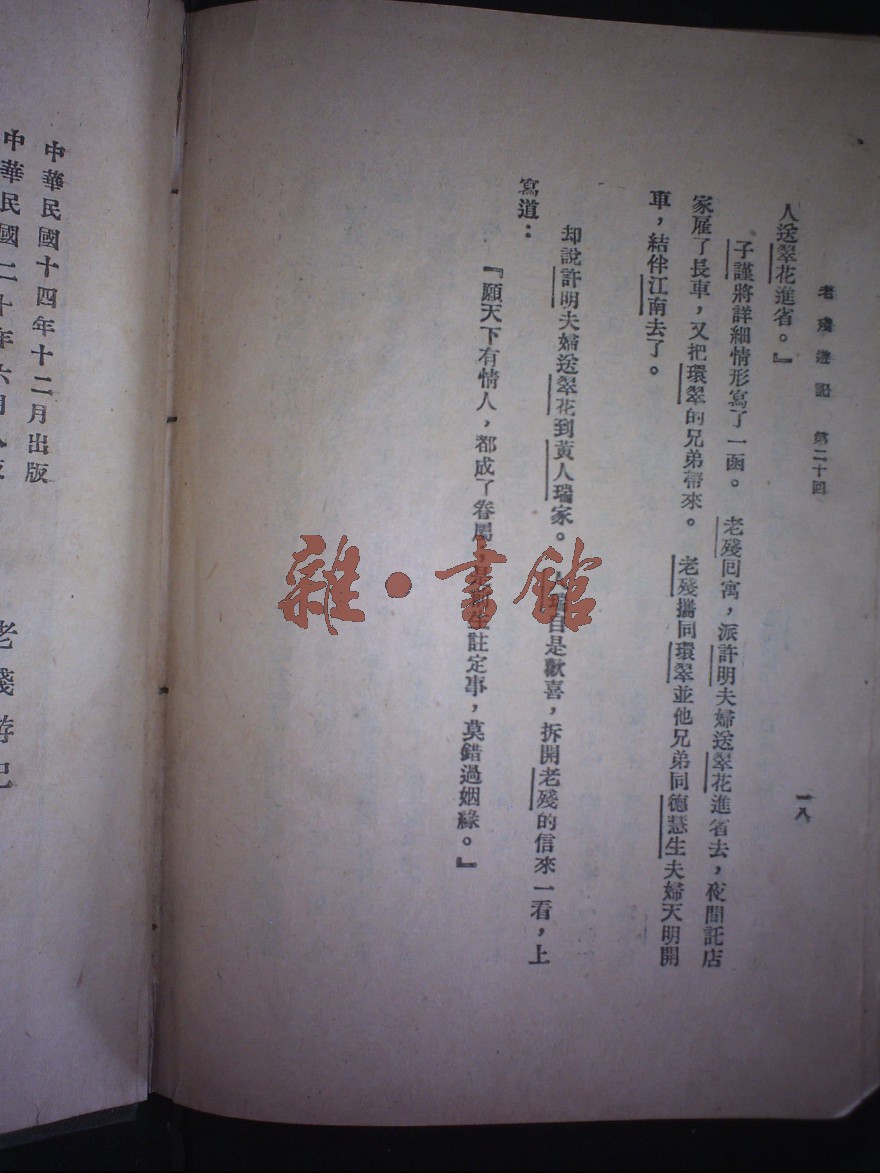 老殘遊記　第二十回
一八
人送翠花進省。』
子謹將詳細情形寫了一函。　老殘回寓，派許明夫婦送翠花進省去，夜間託店
家雇了長車，又把環翠的兄弟帶來。　老殘攜同環翠並他兄弟同德慧生夫婦天明開
車，結伴江南去了。
却說許明夫婦送翠花到黃人瑞家。　人瑞自是歡喜，拆開老殘的信來一看，上
寫道：
『願天下有情人，都成了眷屬，是前生註定事，莫錯過姻緣。』
雜・書館
中華民國十四年十二月出版
中華民國二十年六月八版
老殘游記